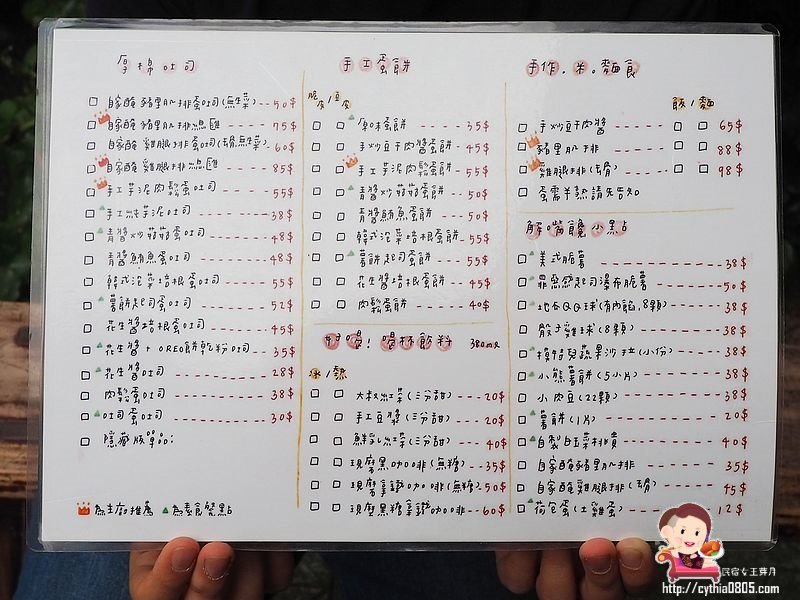 厚棉吐司
自家醃豬里肌排蛋吐司(無生菜)---50$
自家醃豬里肌排總匯------75$
自家醃雞腿排蛋吐司(去骨無生菜)-60$
自家醃雞腿排總匯------85$
手工芋泥肉鬆蛋吐司------55$
手工純芋泥吐司------38$
青醬炒菇菇蛋吐司------48$
青醬鮪魚蛋吐司------48$
韓式泡菜培根蛋吐司------55$
薯餅起司蛋吐司------52$
花生醬培根蛋吐司------45$
花生醬+OREO餅乾粉吐司---35$
花生醬吐司------28$
肉鬆蛋吐司------38$
吐司蛋吐司------30$
隱藏版單品:
為主廚推薦 為素食餐點
手工蛋餅
脆皮/豆皮
原味蛋餅------35$
手炒豆干肉醬蛋餅---45$
手工芋泥肉鬆蛋餅---55$
青醬炒菇菇蛋餅---50$
青醬鮪魚蛋餅------50$
韓式泡菜培根蛋餅--55$
薯餅起司蛋餅------55$
花生醬培根蛋餅----45$
肉鬆蛋餅------40$
好喝!喝杯飲料 380ml
冰/熱
古早味紅茶(三分甜)---20$
手工豆漿(三分甜)----20$
鮮乳紅茶(三分甜)----40$
現磨黑咖啡(無糖)---35$
現磨拿鐵咖啡(無糖)-50$
現磨黑糖拿鐵咖啡--60$
手作。米。麵食
飯/麵
手炒豆干肉醬------65$
豬里肌排------88$
雞腿排(去骨)------98$
蛋需半熟請先告知
解嘴饞小點
美式脆薯------38$
罪惡感起司瀑布脆薯---50$
地瓜QQ球(有內餡,8顆)---38$
骰子雞球(8顆)------38$
模特兒蔬果沙拉(小份)---38$
小熊薯餅(5小片)------38$
小肉豆(22顆)------38$
薯餅(1片)------20$
自製白玉菜排貴------40$
自家醃豬里肌排------35$
自家醃雞腿排(去骨)----45$
荷包蛋(土雞蛋)------12$
民宿女王芽月
http://cythia0805.com